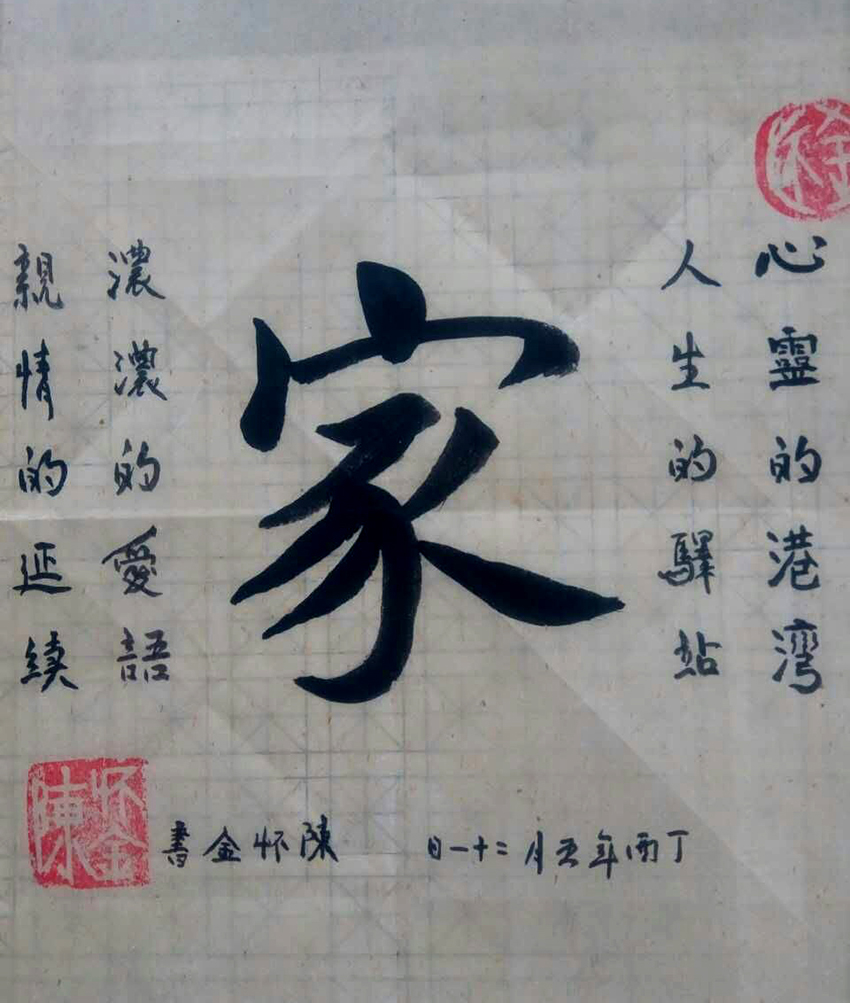 心靈的港湾
人生的驛站
家
濃濃的愛語
親情的延續
丁酉年五月二十一日
陳怀金書
陳怀金